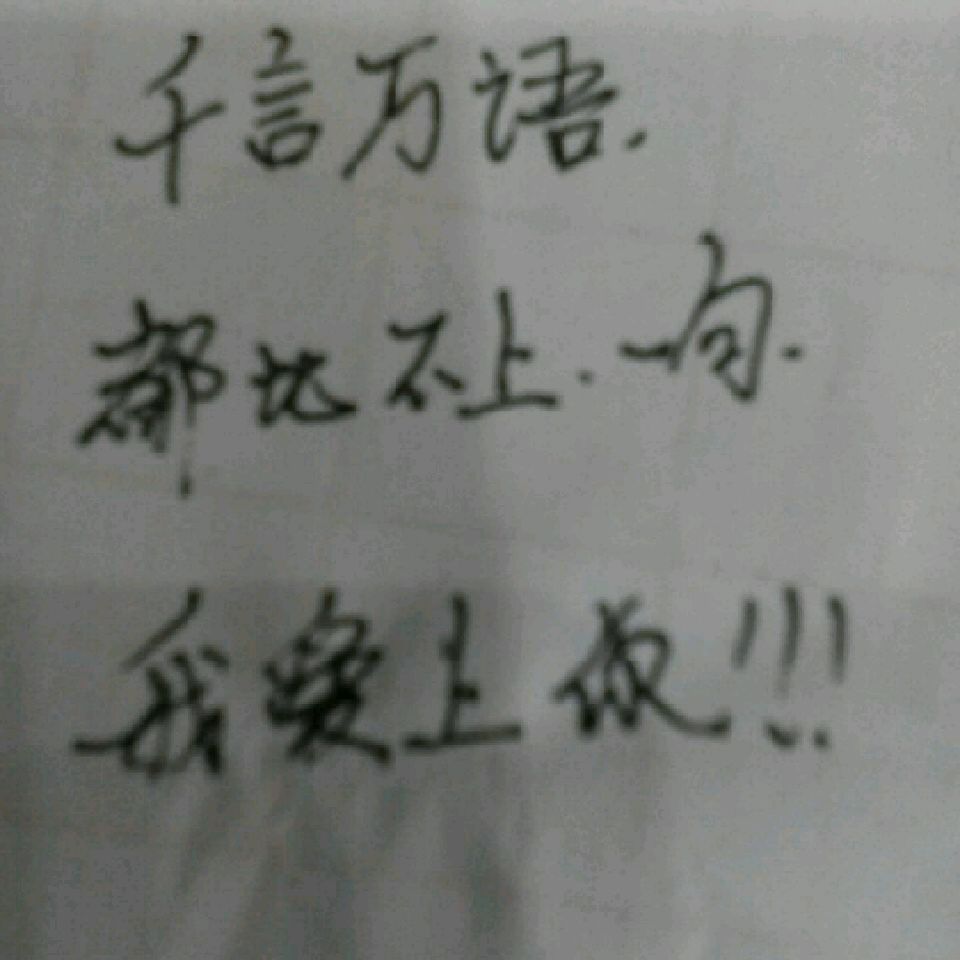 千言万语.
都比不上.一句.
我爱上!!!